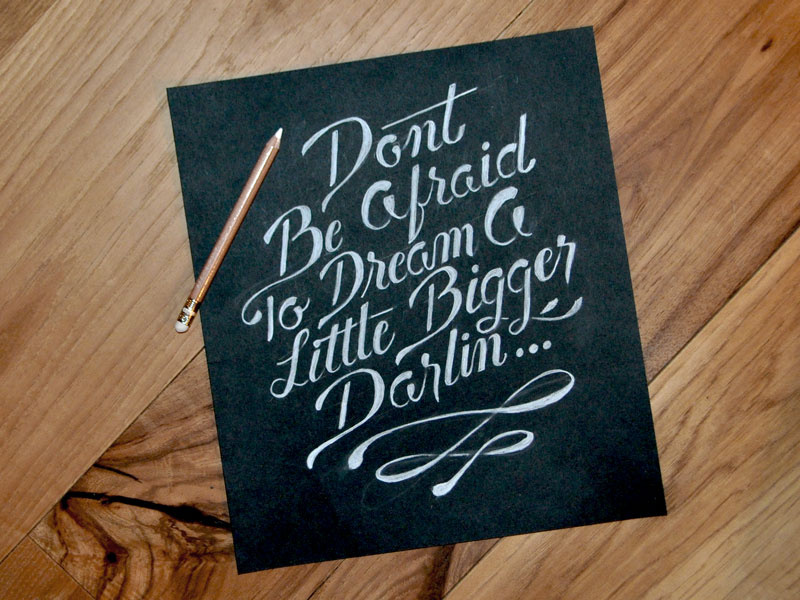 Dont
Be Afraid
To Dream A
Little Bigger
Darlin...